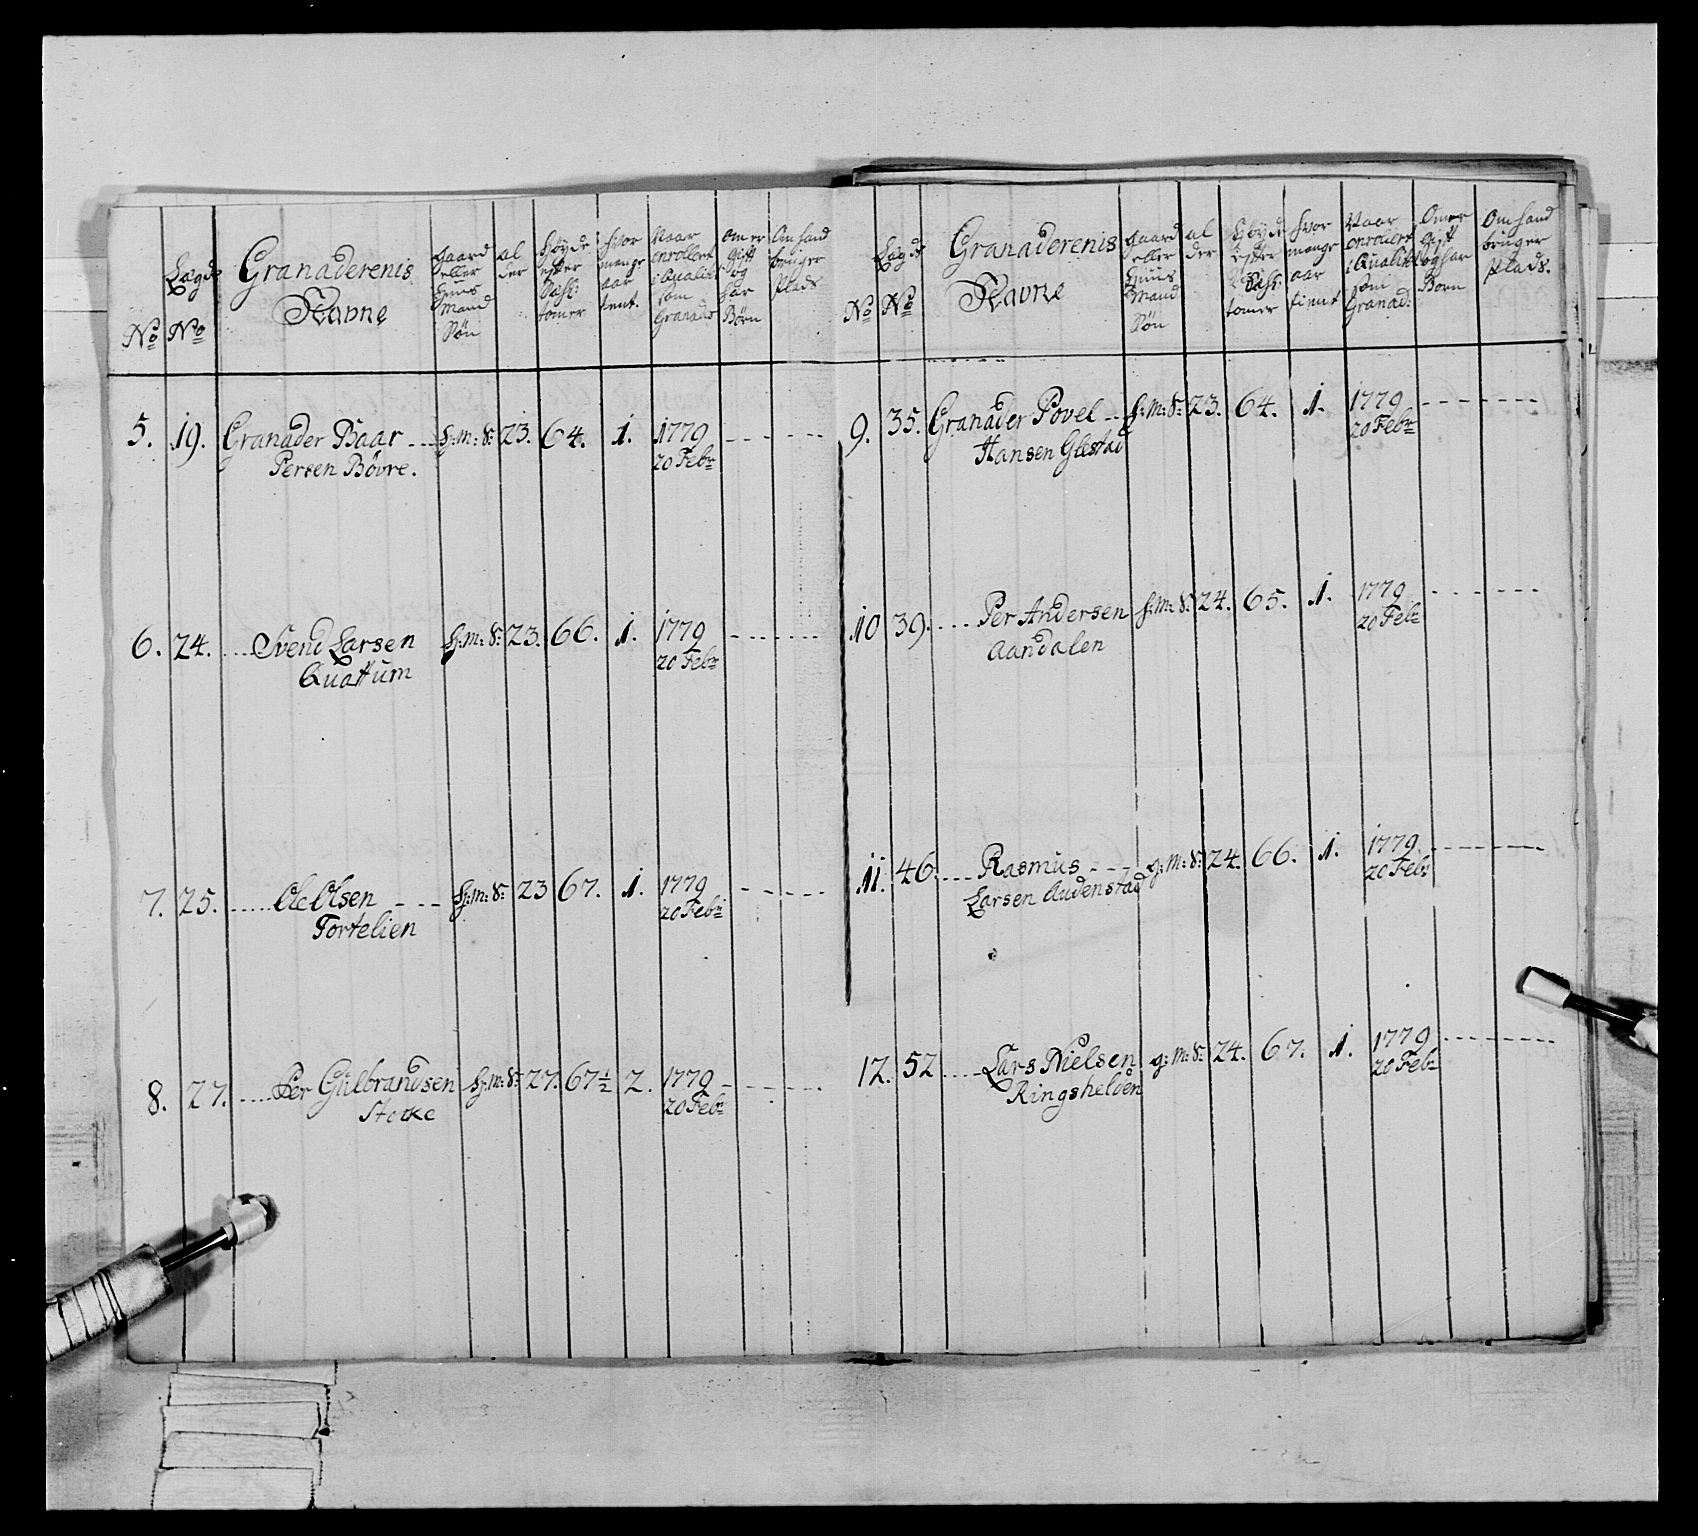 No
Lægds No
Granaderenis Navne
Gaard eller Huus Mand Søn
al der
Høyde efter Vahl: tomer
hvor mange aar tient
Naar enrollert i Qualitet som Granader
Om er gift og har Børn
Om hand bruger Plads
5. 19. Granader Baar .... h: m: s: 23. 64. 1. 1779 - - - -
Persen Bövre. 20 Febr
6. 24. .... Svend Larsen h: m: s: 23. 66. 1. 1779 - - - -
Quattum 20 Febr
7. 25. .... Ole Olsen - - - h: m: s: 23 67. 1. 1779 - - - -
Tortelien 20 Febr
8. 27. .... Per Gulbrandsen h: m: s: 27. 67½ 2. 1779 - - - -
20 Febr
No
Lægds No
Granaderenis Navne
Gaard eller Huus Mand Søn
al der
Høyde efter Vahl: tomer
hvor mange aar tient
Naar enrollert i Qualitet som Granad:
Om er Gift og har Born
Om hand bruger Plads.
9. 35. Granader Povel .. h: m: s: 23. 64. 1. 1779 - - - -
Hansen 20 Febr
10 39. .... Per Andersen h: m: s: 24. 65. 1. 1779 - - - -
Aandalen 20 Febr
11. 46. .... Rasmus - - - g: m: s: 24. 66. 1. 1779 - - - -
Larsen Audenstad 20 Febr
12. 52 .... Lars Nielsen g: m: s: 24. 67. 1. 1779 - - - -
Ringshelden 20 Febr